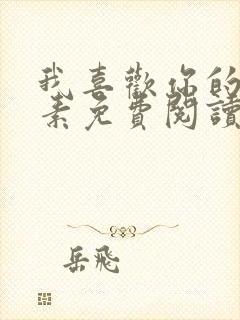 我喜歡你的
素免費閱讀
岳飛